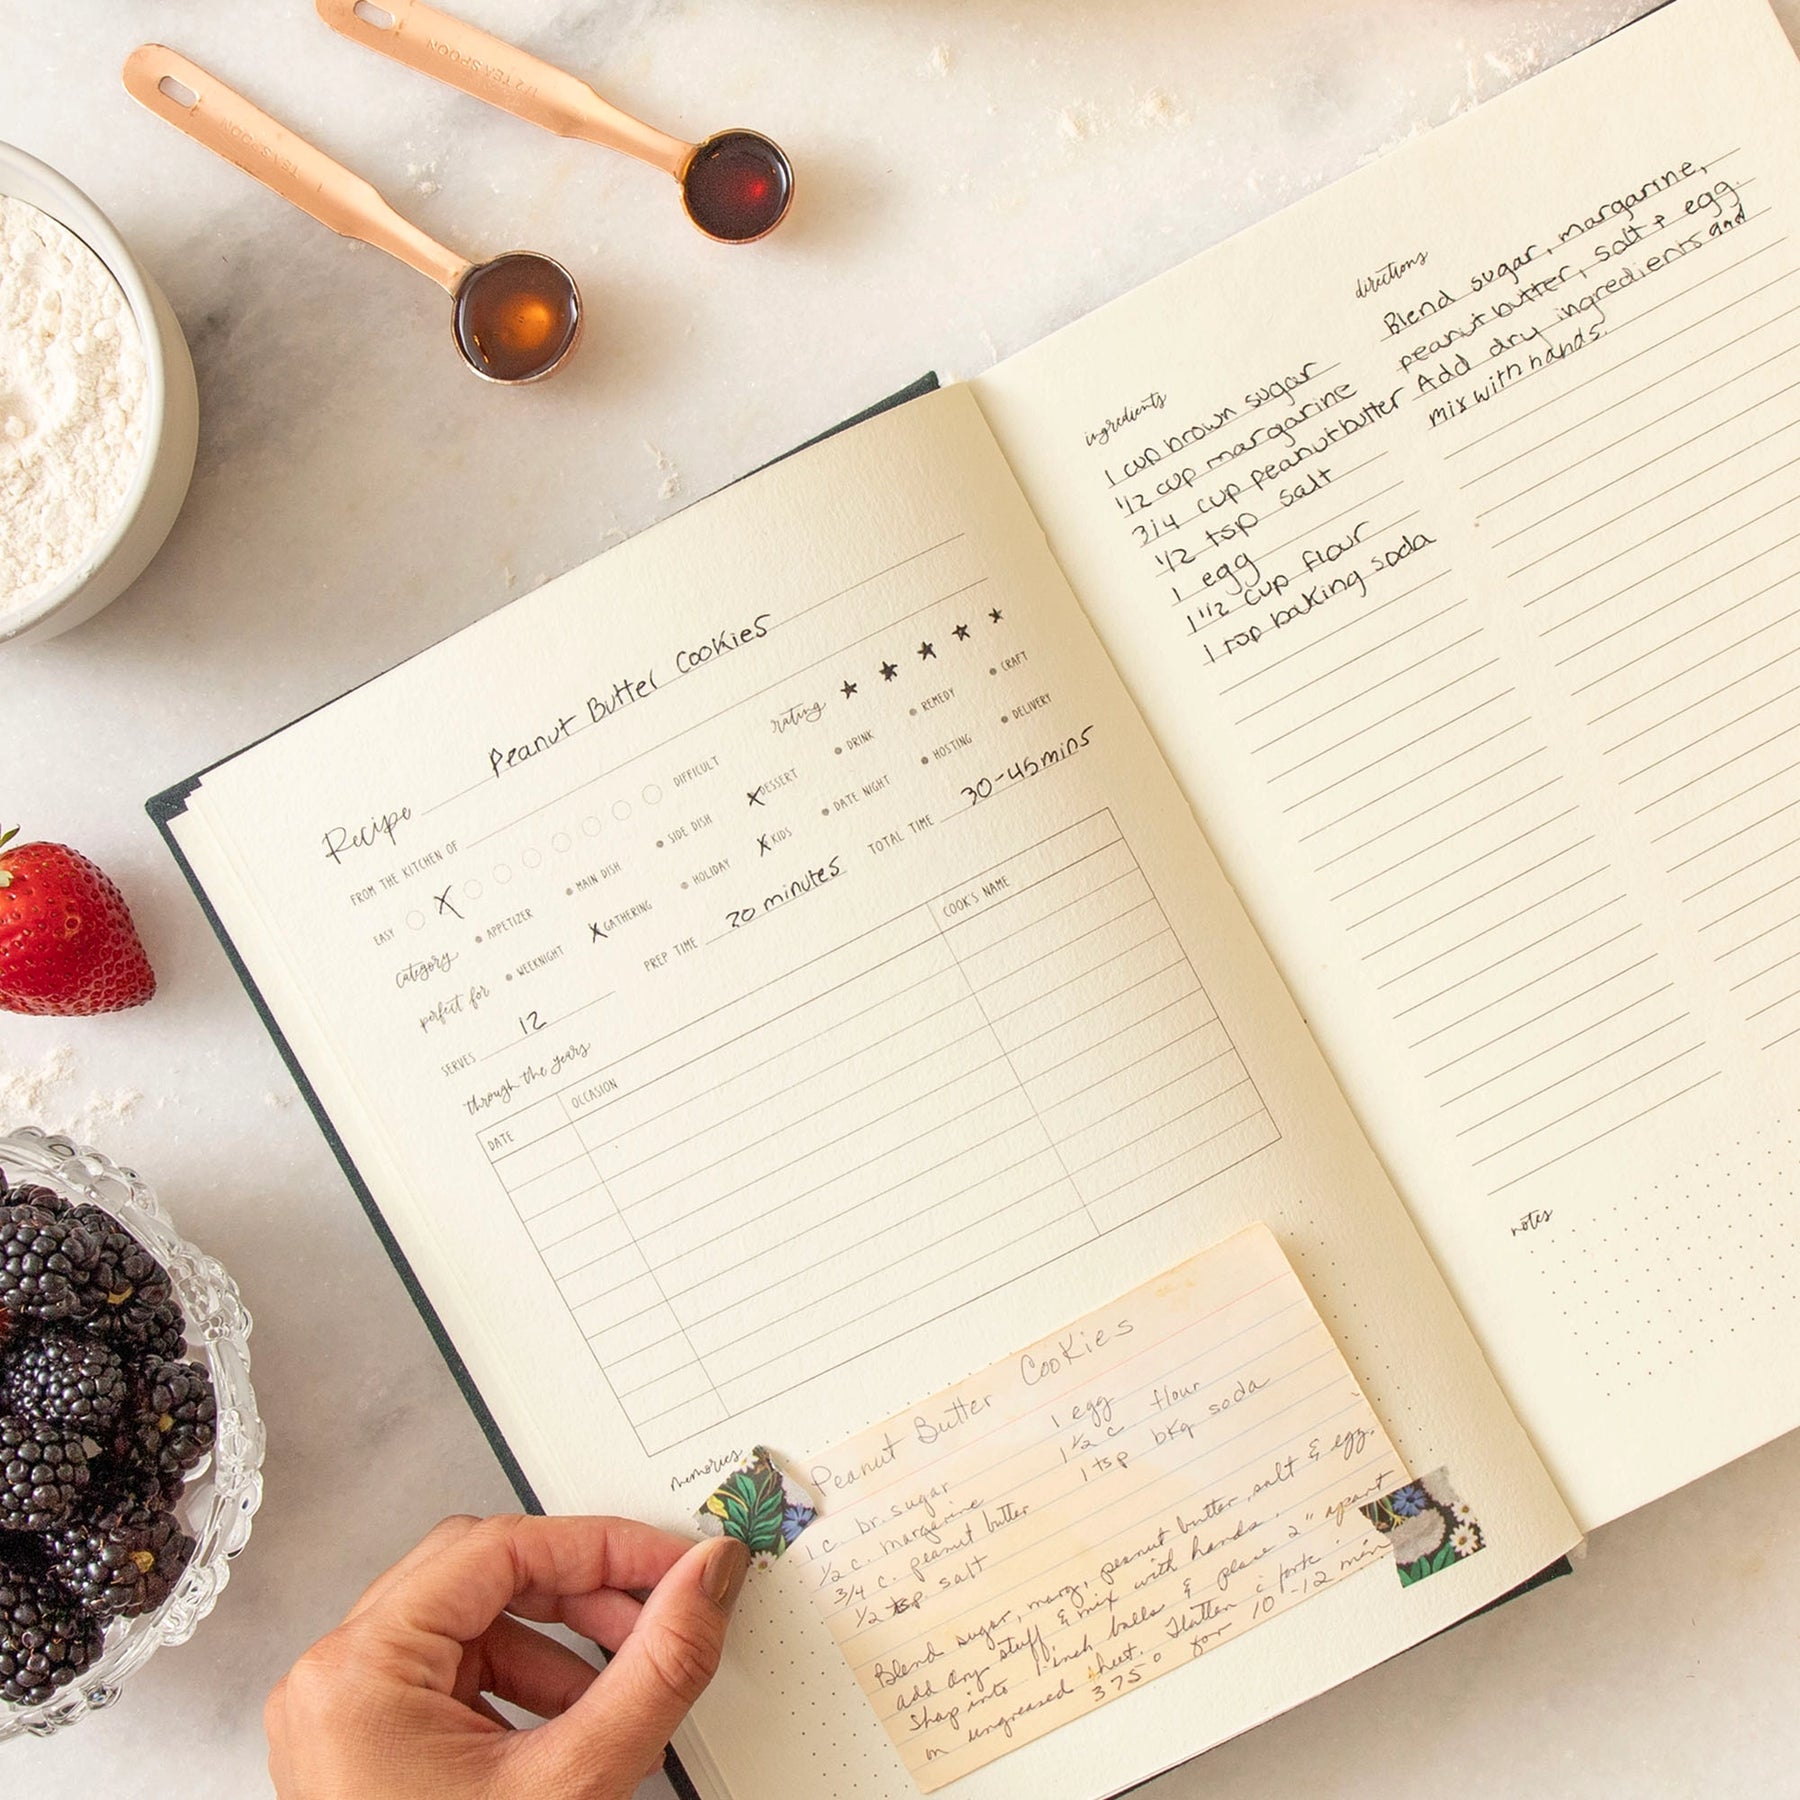 1 TEASPOON
1/2 TEASPOON
Recipe Peanut Butter Cookies
FROM THE KITCHEN OF
EASY DIFFICULT rating
category APPETIZER MAIN DISH SIDE DISH DESSERT DRINK REMEDY CRAFT
perfect for WEEKNIGHT GATHERING HOLIDAY KIDS DATE NIGHT HOSTING DELIVERY
SERVES 12 PREP TIME 20 minutes TOTAL TIME 30-45mins
through the years
DATE OCCASION COOK'S NAME
memories
Peanut Butter Cookies
1 c. br. sugar 1 egg
1/2 c. margarine 1 1/2 c flour
3/4 c. peanut butter 1 tsp bkg soda
1/2 tsp. salt
Blend sugar, marg, peanut butter, salt & egg.
add dry stuff & mix with hands.
Shap into 1-inch balls & place 2" apart
on ungreased sheet. Flatten c fork.
375° for 10-12 min
ingredients
1 cup brown sugar
1/2 cup margarine
3/4 cup peanut butter
1/2 tsp salt
1 egg
1 1/2 cup flour
1 tsp baking soda
directions
Blend sugar, margarine,
peanut butter, salt + egg.
Add dry ingredients and
mix with hands.
notes